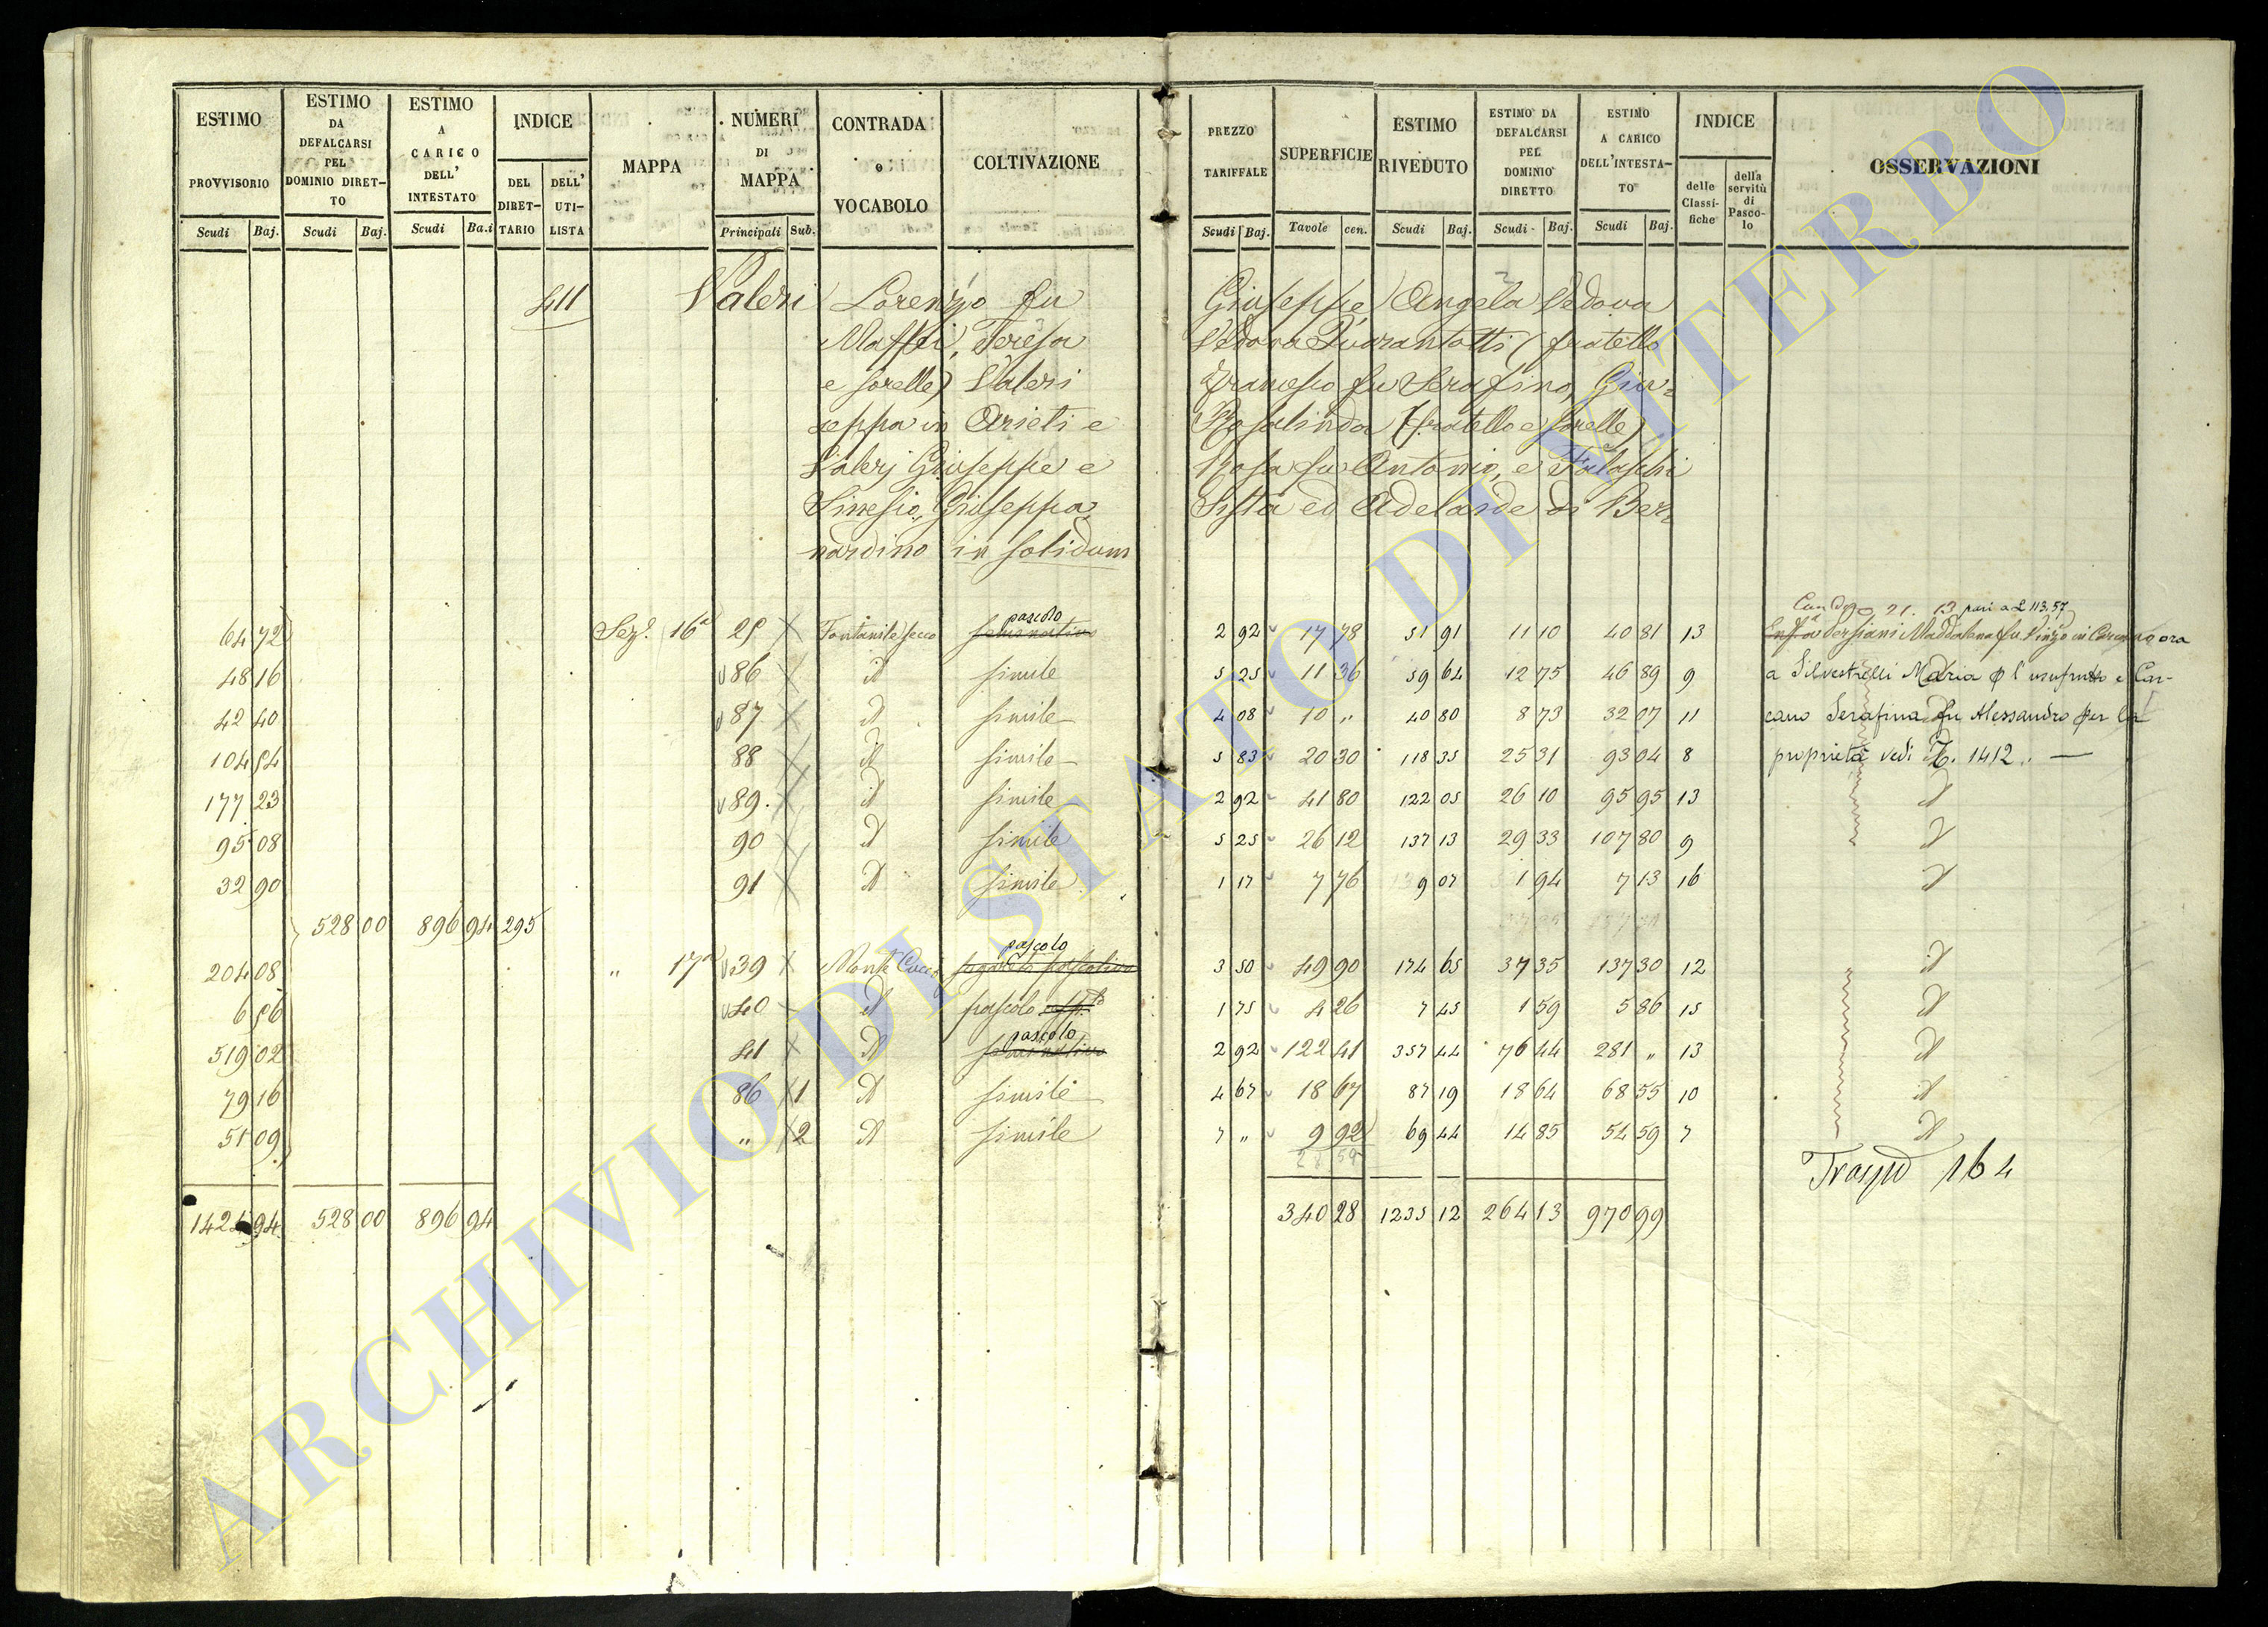 ESTIMO PROVVISORIO Scudi Baj.
ESTIMO DA DEFALCARSI PEL DOMINIO DIRET-TO Scudi Baj.
ESTIMO A CARICO DELL' INTESTATO Scudi Ba.i
INDICE DEL DIRET-TARIO DELL' UTI-LISTA
MAPPA
NUMERI DI MAPPA Principali Sub.
CONTRADA o VOCABOLO
COLTIVAZIONE
PREZZO TARIFFALE Scudi Baj.
SUPERFICIE Tavole cen.
ESTIMO RIVEDUTO Scudi Baj.
ESTIMO DA DEFALCARSI PEL DOMINIO DIRETTO Scudi Baj.
ESTIMO A CARICO DELL'INTESTA-TO Scudi Baj.
INDICE delle Classi-fiche della servitù di Pasco-lo
OSSERVAZIONI
411 Valeri Lorenzo fu Giuseppe, Angela Vedova
Maffei, Teresa Vedova Quarantotti (fratello
e sorelle) Valeri Francesco fu Serafino, Giu=
seppa in Arieti e Rosalinda (fratello e sorelle)
Valerj Giuseppe e Rosa fu Antonio, e Falaschi
Sinesio, Giuseppa, Sista ed Adelaide di Ber=
nardino in solidum
pascolo 21. 13 pari a £ 113,57
64 72 Sez.e 16a 25 Fontanile secco seminativo 2 92 17 78 51 91 11 10 40 81 13 Persiani Maddalena fu Vinzo in ora
48 16 86 id simile 5 25 11 36 59 64 12 75 46 89 9 a Silvestrelli Maria l'usufrutto e Car-
42 40 87 id simile 4 08 10 " 40 80 8 73 32 07 11 cano Serafina fu Alessandro per la
104 54 88 id simile 5 83 20 30 118 35 25 31 93 04 8 proprietà vedi N. 1412. —
177 23 89. id simile 2 92 41 80 122 05 26 10 95 95 13 id
95 08 90 id simile 5 25 26 12 137 13 29 33 107 80 9 id
32 90 91 id simile 1 17 7 76 9 07 1 94 7 13 16 id
528 00 896 94 295
pascolo
204 08 " 17a 39 Monte Cucco 3 50 49 90 174 65 37 35 137 30 12 id
6 56 40 id pascolo 1 75 4 26 7 45 1 59 5 86 15 id
pascolo
519 02 41 id seminativo 2 92 122 41 357 44 76 44 281 " 13 id
79 16 86 1 id simile 4 67 18 67 87 19 18 64 68 55 10 id
51 09 " 2 id simile 7 " 9 92 69 44 14 85 54 59 7 id
164
1424 94 528 00 896 94 340 28 1235 12 264 13 970 99
ARCHIVIO DI STATO DI VITERBO